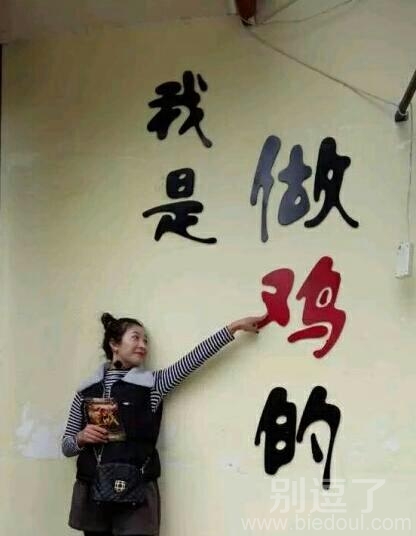 我是
做鸡的
别逗了
www.biedoul.com